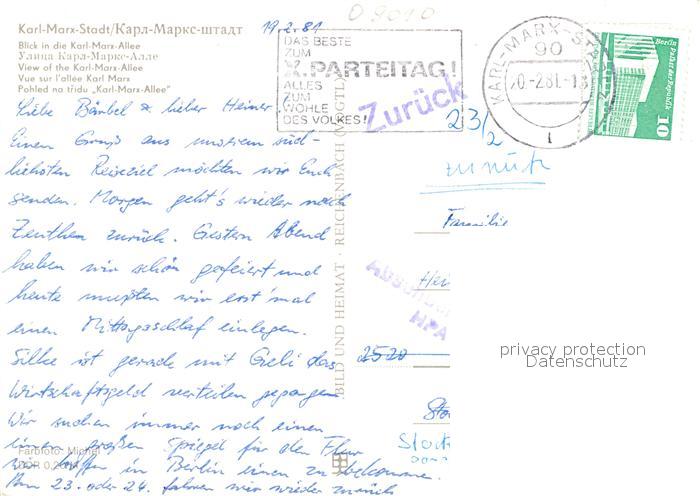 Karl-Marx-Stadt/Карл-Маркс-штадт
Blick in die Karl-Marx-Allee
Улица Карл-Маркс-Алле
View of the Karl-Marx-Allee
Vue sur l'allee Karl Marx
Pohled na třídu „Karl-Marx-Allee"
19.2.81
Liebe Bärbel & lieber Heiner
Einen Gruß aus unserem süd-
lichsten Reiseziel möchten wir Euch
senden. Morgen geht's wieder nach
Zeuthen zurück. Gestern Abend
haben wir schön gefeiert und
heute mußten wir erst 'mal
einen Mittagsschlaf einlegen.
Silke ist gerade mit Geli das
Wirtschaftsgeld verteilen gegangen
Wir suchen immer noch einen
einen großen Spiegel für den Flur
wir hoffen in Berlin einen zu bekommen.
Am 23. oder 24. fahren wir wieder zurück
Farbfoto: Michel
DDR 0,20 M
BILD UND HEIMAT · REICHENBACH (VOGTL)
09010
DAS BESTE
ZUM
X. PARTEITAG!
ALLES
ZUM
WOHLE
DES VOLKES!
Zurück
KARL-MARX-ST
90
20.-2.81.-13
Berlin, Palast der Republik
10
DDR
23/2
zurück
Familie
Hei
Absender
HPA
2520
Sto
Stock
privacy protection
Datenschutz